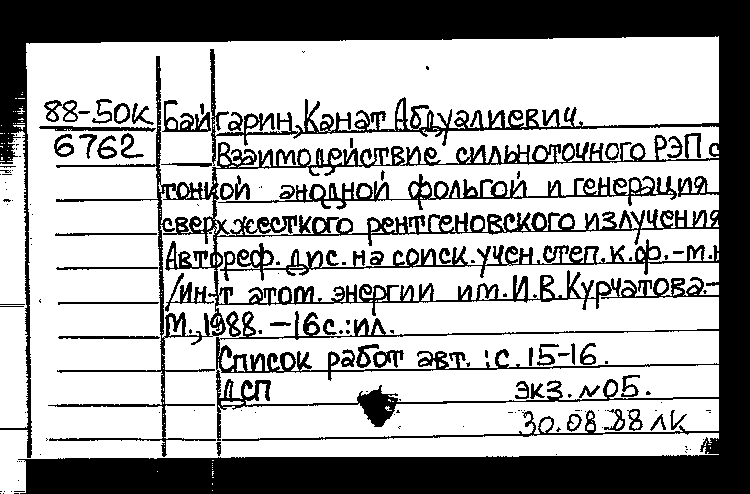 88-50К Байгарин, Канат Абдуалиевич.
6762 Взаимодействие сильноточного РЭП с
тонкой анодной фольгой и генерация
сверхжесткого рентгеновского излучения
Автореф. дис. на соиск. учен. степ. к.ф.-м.н
/Ин-т атом. энергии им. И.В.Курчатова.-
М., 1988. -16с.:ил.
Список работ авт.: с. 15-16.
ДСП экз. №05.
30.08.88 ЛК